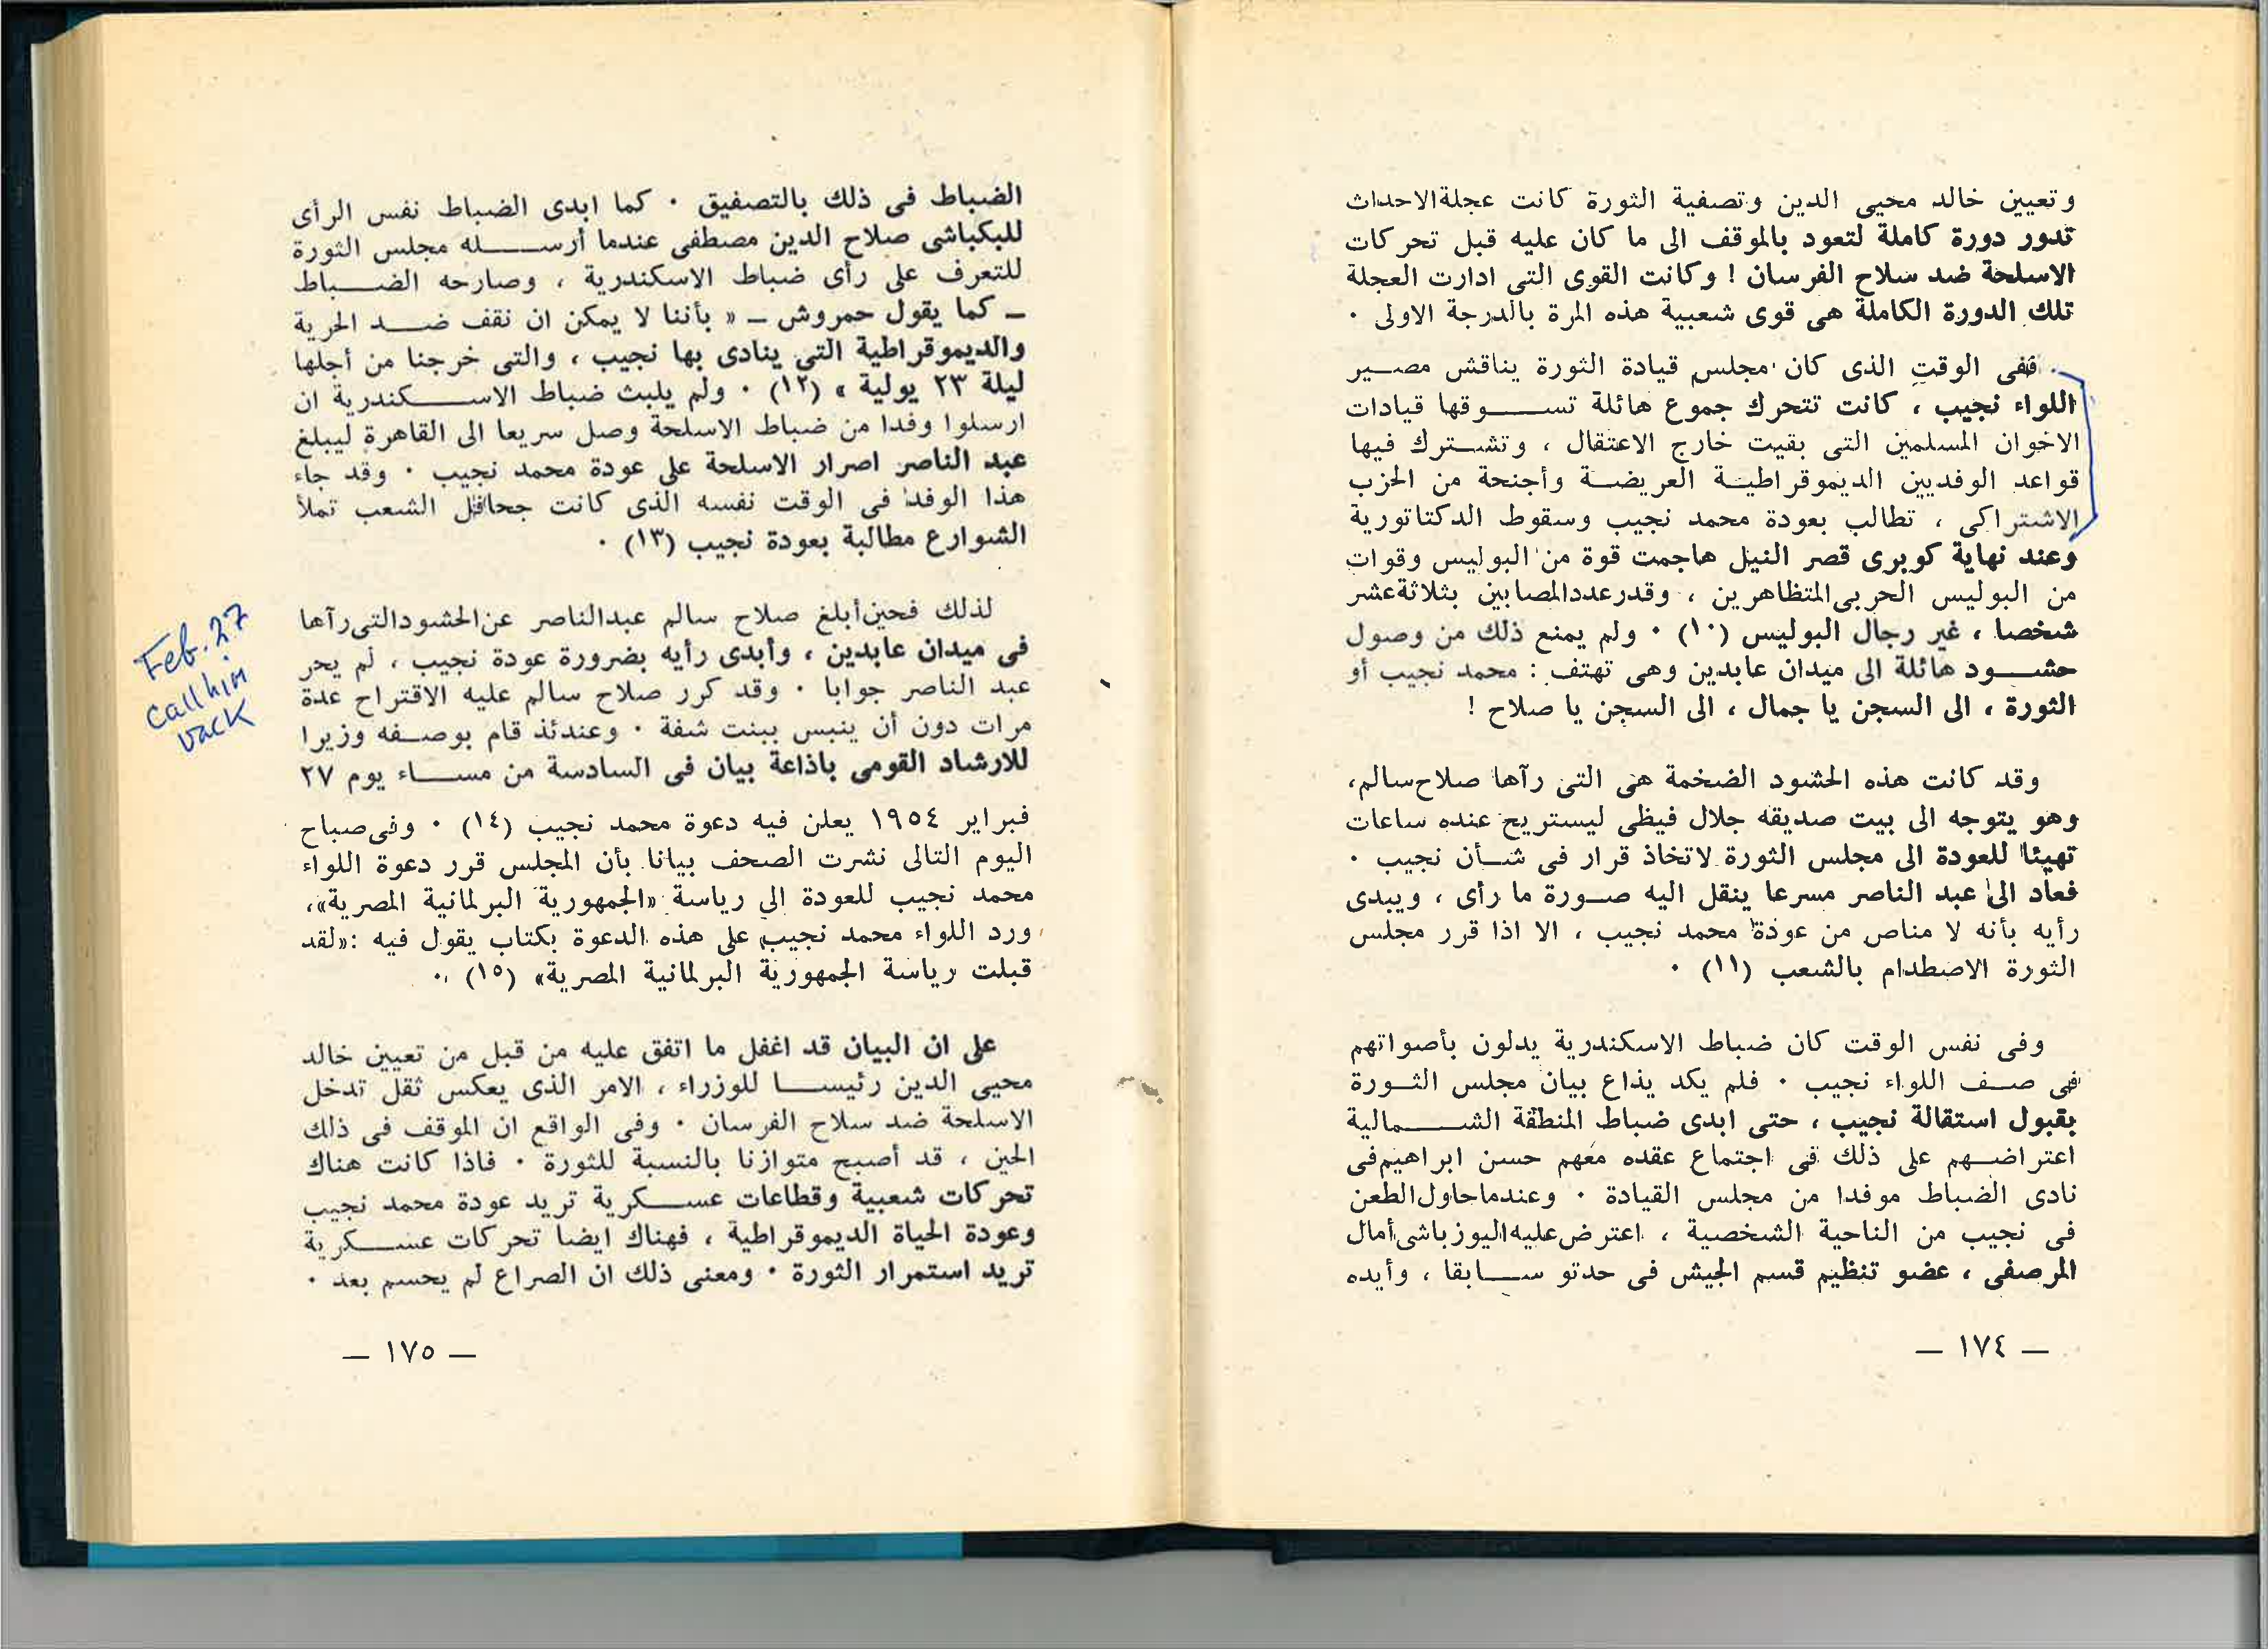 وتعيين خالد محيى الدين وتصفية الثورة كانت عجلة الاحداث
تدور دورة كاملة لتعود بالموقف الى ما كان عليه قبل تحركات
الاسلحة ضد سلاح الفرسان ! وكانت القوى التى ادارت العجلة
تلك الدورة الكاملة هى قوى شعبية هذه المرة بالدرجة الاولى ٠
ففى الوقت الذى كان مجلس قيادة الثورة يناقش مصير
اللواء نجيب ، كانت تتحرك جموع هائلة تسوقها قيادات
الاخوان المسلمين التى بقيت خارج الاعتقال ، وتشترك فيها
قواعد الوفديين الديموقراطية العريضة وأجنحة من الحزب
الاشتراكى ، تطالب بعودة محمد نجيب وسقوط الدكتاتورية
وعند نهاية كوبرى قصر النيل هاجمت قوة من البوليس وقوات
من البوليس الحربى المتظاهرين ، وقدر عدد المصابين بثلاثة عشر
شخصا ، غير رجال البوليس (١٠) ٠ ولم يمنع ذلك من وصول
حشود هائلة الى ميدان عابدين وهى تهتف : محمد نجيب أو
الثورة ، الى السجن يا جمال ، الى السجن يا صلاح !
وقد كانت هذه الحشود الضخمة هى التى رآها صلاح سالم،
وهو يتوجه الى بيت صديقه جلال فيظى ليستريح عنده ساعات
تهيئا للعودة الى مجلس الثورة لاتخاذ قرار فى شأن نجيب ٠
فعاد الى عبد الناصر مسرعا ينقل اليه صورة ما رأى ، ويبدى
رأيه بأنه لا مناص من عودة محمد نجيب ، الا اذا قرر مجلس
الثورة الاصطدام بالشعب (١١) ٠
وفى نفس الوقت كان ضباط الاسكندرية يدلون بأصواتهم
فى صف اللواء نجيب ٠ فلم يكد يذاع بيان مجلس الثورة
بقبول استقالة نجيب ، حتى ابدى ضباط المنطقة الشمالية
اعتراضهم على ذلك فى اجتماع عقده معهم حسن ابراهيم فى
نادى الضباط موفدا من مجلس القيادة ٠ وعندما حاول الطعن
فى نجيب من الناحية الشخصية ، اعترض عليه اليوزباشى أمال
المرصفى ، عضو تنظيم قسم الجيش فى حدتو سابقا ، وأيده
— ١٧٤ —
الضباط فى ذلك بالتصفيق ٠ كما ابدى الضباط نفس الرأى
للبكباشى صلاح الدين مصطفى عندما أرسله مجلس الثورة
للتعرف على رأى ضباط الاسكندرية ، وصارحه الضباط
ـ كما يقول حمروش ـ « بأننا لا يمكن ان نقف ضد الحرية
والديموقراطية التى ينادى بها نجيب ، والتى خرجنا من أجلها
ليلة ٢٣ يولية » (١٢) ٠ ولم يلبث ضباط الاسكندرية ان
ارسلوا وفدا من ضباط الاسلحة وصل سريعا الى القاهرة ليبلغ
عبد الناصر اصرار الاسلحة على عودة محمد نجيب ٠ وقد جاء
هذا الوفد فى الوقت نفسه الذى كانت جحافل الشعب تملأ
الشوارع مطالبة بعودة نجيب (١٣) ٠
لذلك فحين أبلغ صلاح سالم عبد الناصر عن الحشود التى رآها
فى ميدان عابدين ، وأبدى رأيه بضرورة عودة نجيب ، لم يحر
عبد الناصر جوابا ٠ وقد كرر صلاح سالم عليه الاقتراح عدة
مرات دون أن ينبس ببنت شفة ٠ وعندئذ قام بوصفه وزيرا
للارشاد القومى باذاعة بيان فى السادسة من مساء يوم ٢٧
فبراير ١٩٥٤ يعلن فيه دعوة محمد نجيب (١٤) ٠ وفى صباح
اليوم التالى نشرت الصحف بيانا بأن المجلس قرر دعوة اللواء
محمد نجيب للعودة الى رياسة «الجمهورية البرلمانية المصرية»،
ورد اللواء محمد نجيب على هذه الدعوة بكتاب يقول فيه :«لقد
قبلت رياسة الجمهورية البرلمانية المصرية» (١٥) ٠
على ان البيان قد اغفل ما اتفق عليه من قبل من تعيين خالد
محيى الدين رئيسا للوزراء ، الامر الذى يعكس ثقل تدخل
الاسلحة ضد سلاح الفرسان ٠ وفى الواقع ان الموقف فى ذلك
الحين ، قد أصبح متوازنا بالنسبة للثورة ٠ فاذا كانت هناك
تحركات شعبية وقطاعات عسكرية تريد عودة محمد نجيب
وعودة الحياة الديموقراطية ، فهناك ايضا تحركات عسكرية
تريد استمرار الثورة ٠ ومعنى ذلك ان الصراع لم يحسم بعد ٠
— ١٧٥ —
Feb. 27
call him
back